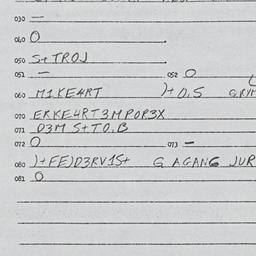 030 —
040 O
050 S+TROJ
051 — 052 O
060 M1KE4RT )+O.S GRYM
070 EKKE4RT3MPOP3X
071 D3M S+TO.B
072 O 073 —
080 )+FE)D3RV1S+ G AGANG JUR
081 O